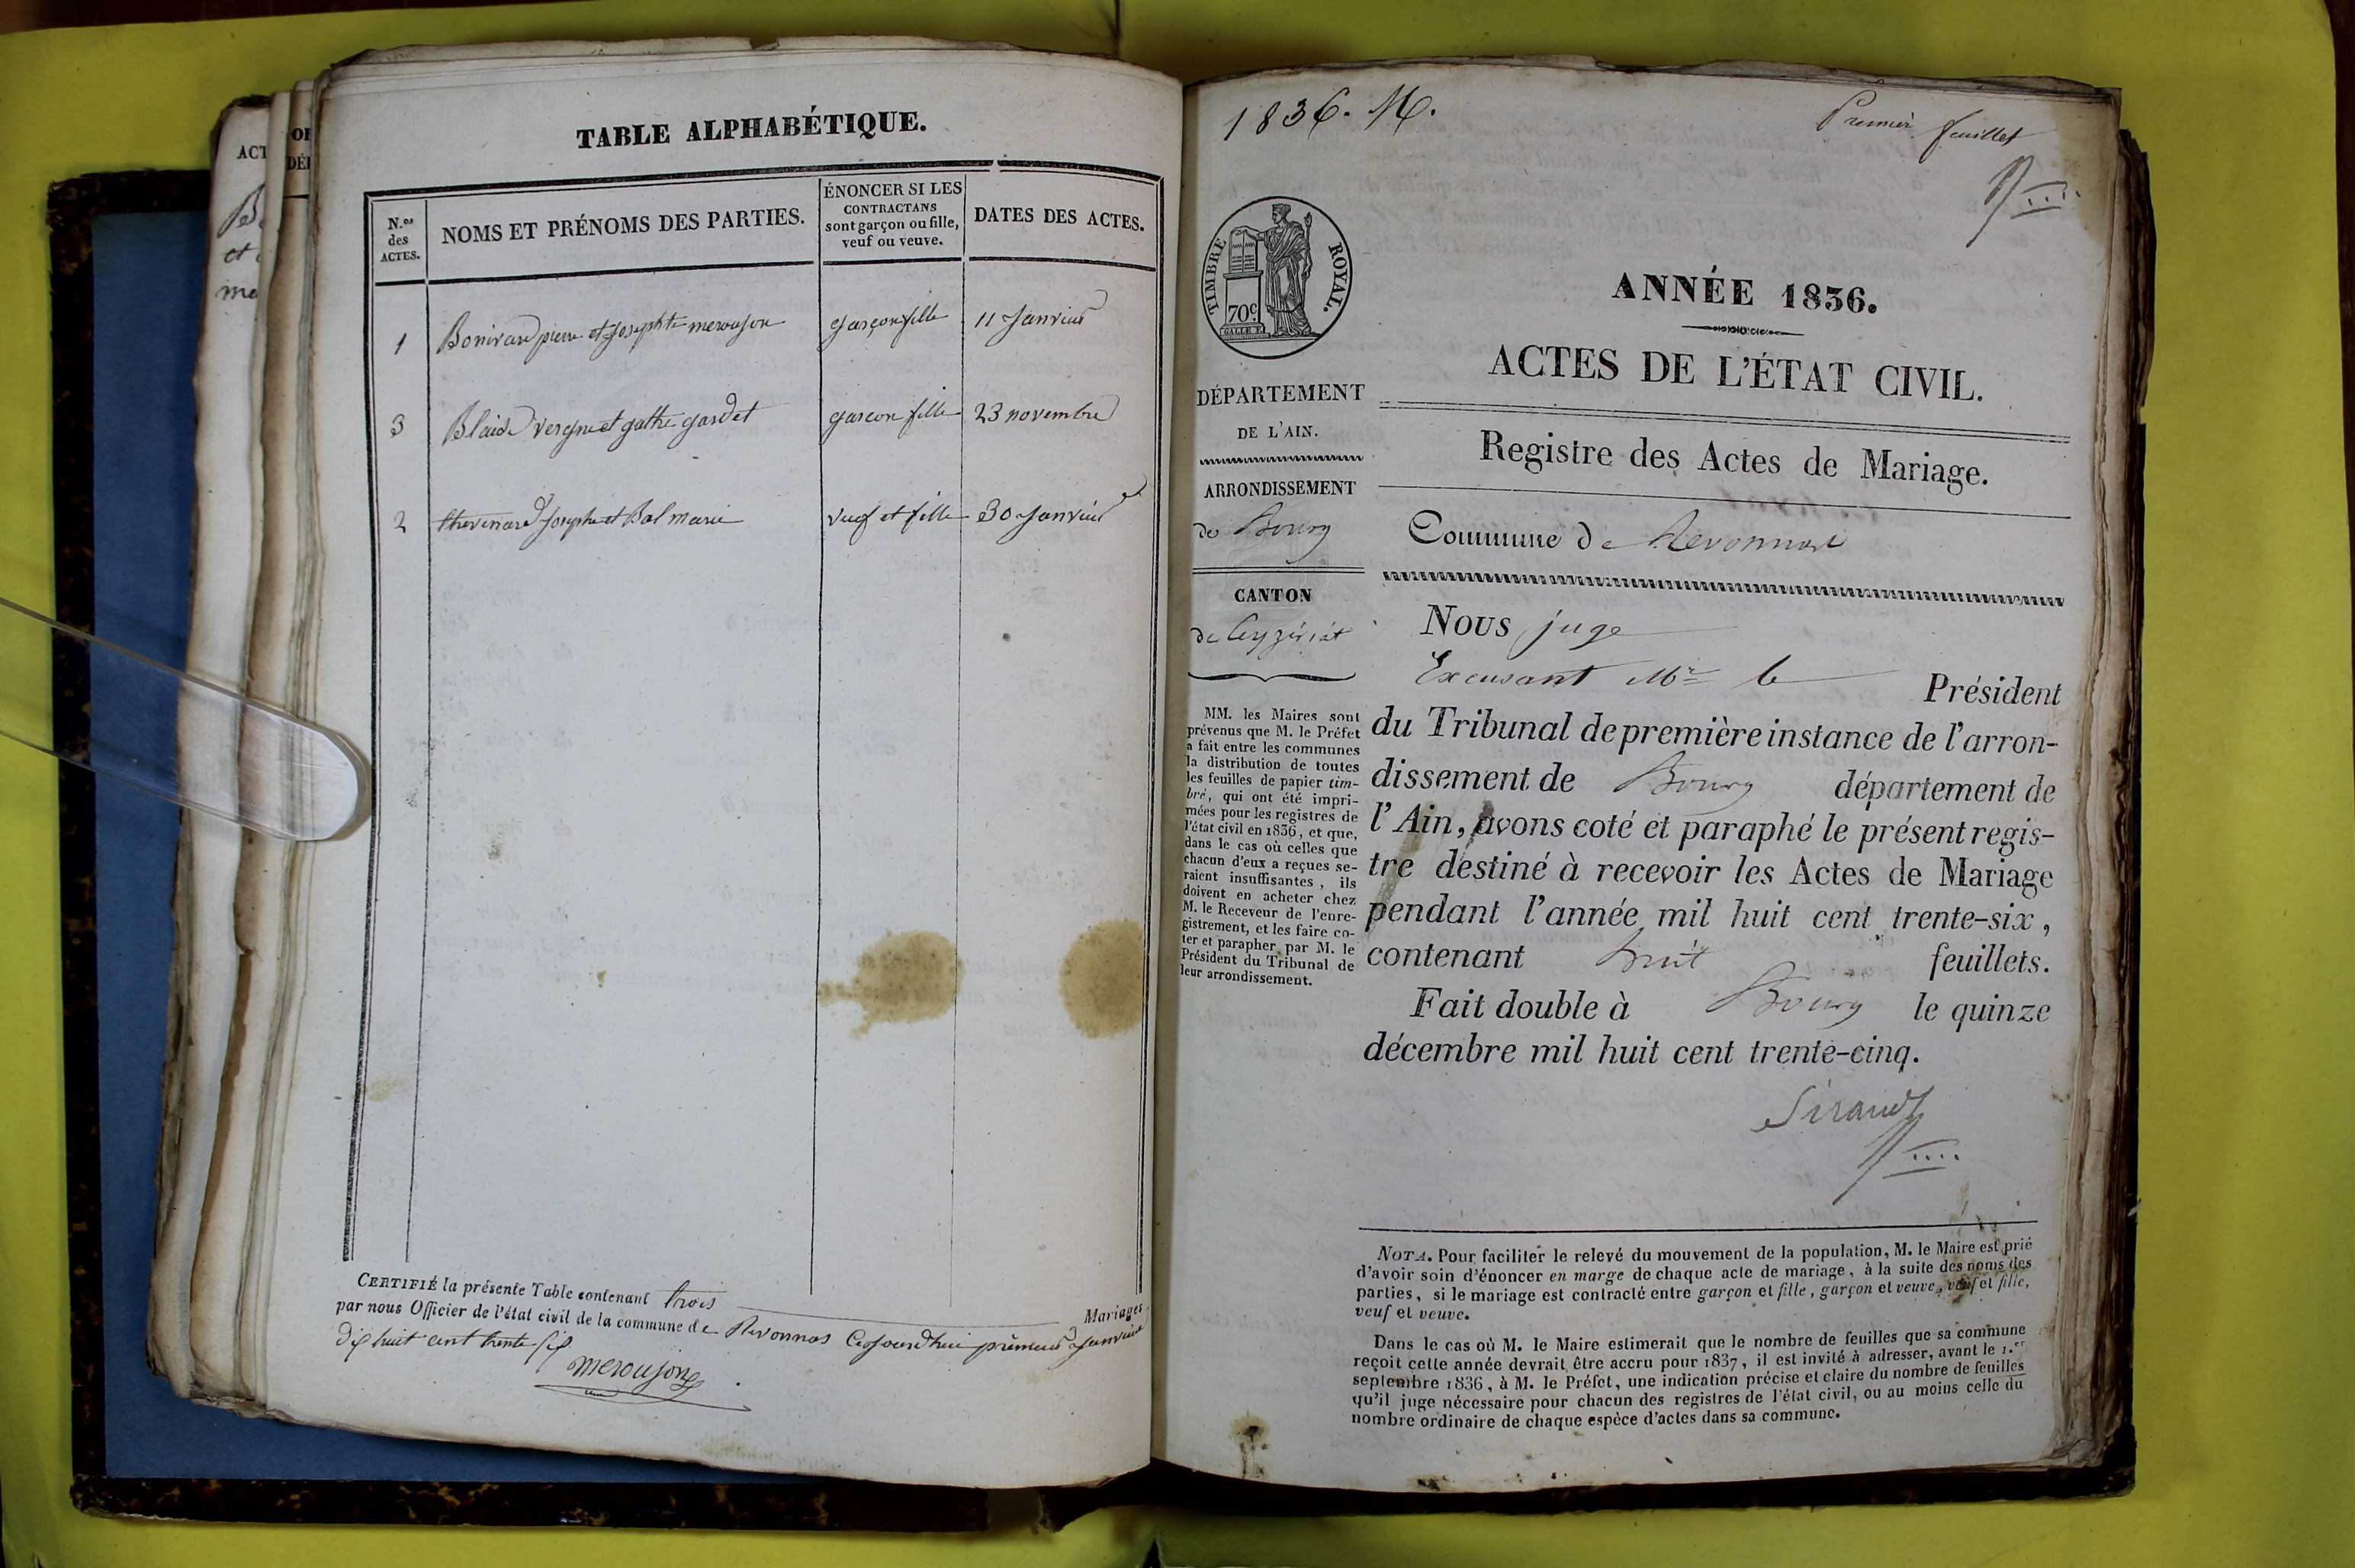 ACT
OF
DÉI
et
me
TABLE ALPHABÉTIQUE.
N.os
des
ACTES.
NOMS ET PRÉNOMS DES PARTIES.
ÉNONCER SI LES
CONTRACTANS
sont garçon ou fille,
veuf ou veuve.
DATES DES ACTES.
1 Bonivard pierre et Josephte meroujon garçon fille 11 Janvier
3 Blaise Vergne et gathe gardet garcon fille 23 novembre
2 thevenard Joseph et Bal marie veuf et fille 30 Janvier
CERTIFIÉ la présente Table contenant trois Mariages
par nous Officier de l'état civil de la commune de Revonnas Cejourdhui premier Janvier
dix huit cent trente six
meroujon
1836. M.
Premier feuillet
TIMBRE ROYAL.
70c
DÉPARTEMENT
DE L'AIN.
ARRONDISSEMENT
de Bourg
CANTON
de Ceyzériat
MM. les Maires sont
prévenus que M. le Préfet
a fait entre les communes
la distribution de toutes
les feuilles de papier tim-
bré, qui ont été impri-
mées pour les registres de
l'état civil en 1836, et que,
dans le cas où celles que
chacun d'eux a reçues se-
raient insuffisantes, ils
doivent en acheter chez
M. le Receveur de l'enre-
gistrement, et les faire co-
ter et parapher par M. le
Président du Tribunal de
leur arrondissement.
ANNÉE 1836.
ACTES DE L'ÉTAT CIVIL.
Registre des Actes de Mariage.
Commune de Revonnas
Nous juge
Excusant Mr le Président
du Tribunal de première instance de l'arron-
dissement de Bourg département de
l'Ain, avons coté et paraphé le présent regis-
tre destiné à recevoir les Actes de Mariage
pendant l'année mil huit cent trente-six,
contenant huit feuillets.
Fait double à Bourg le quinze
décembre mil huit cent trente-cinq.
Sirand
NOTA. Pour faciliter le relevé du mouvement de la population, M. le Maire est prié
d'avoir soin d'énoncer en marge de chaque acte de mariage, à la suite des noms des
parties, si le mariage est contracté entre garçon et fille, garçon et veuve, veuf et fille,
veuf et veuve.
Dans le cas où M. le Maire estimerait que le nombre de feuilles que sa commune
reçoit cette année devrait être accru pour 1837, il est invité à adresser, avant le 1.er
septembre 1836, à M. le Préfet, une indication précise et claire du nombre de feuilles
qu'il juge nécessaire pour chacun des registres de l'état civil, ou au moins celle du
nombre ordinaire de chaque espèce d'actes dans sa commune.